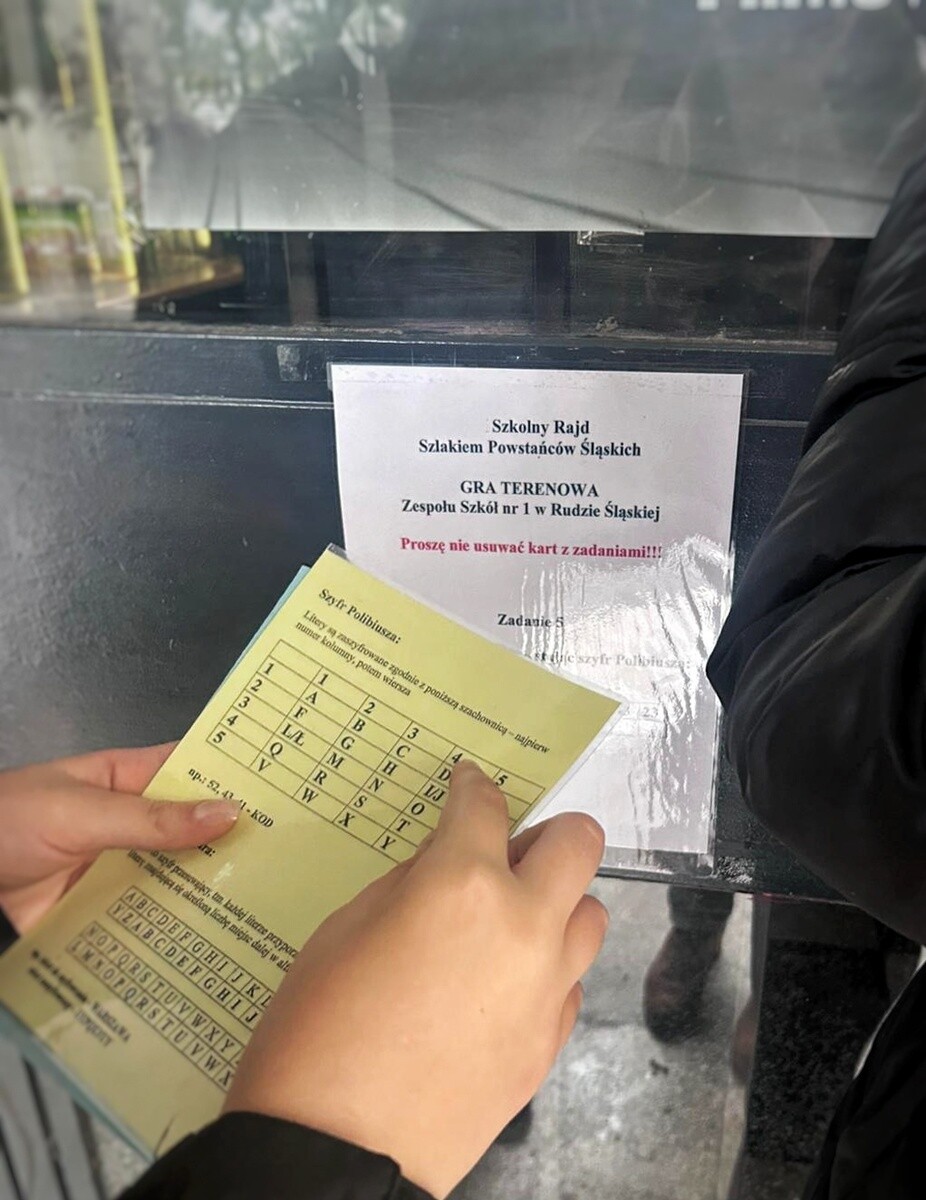 Szkolny Rajd
Szlakiem Powstańców Śląskich
GRA TERENOWA
Zespołu Szkół nr 1 w Rudzie Śląskiej
Proszę nie usuwać kart z zadaniami!!!
Zadanie 5
szyfr Polibiusza:
23
Szyfr Polibiusza:
Litery są zaszyfrowane zgodnie z poniższą szachownicą – najpierw
numer kolumny, potem wiersza
1 2 3 4 5
1 A B C D
2 F G H I/J
3 L/Ł M N O
4 Q R S T
5 V W X Y
np.: 52, 43, 41 - KOD
szyfr przesuwający, tzn. każdej literze
literę znajdującą się określoną liczbę miejsc dalej w
A B C D E F G H I J K L
Y Z A B C D E F G H I J
N O P Q R S T U V W X Y Z
L M N O P Q R S T U V W X
WARSZAWA